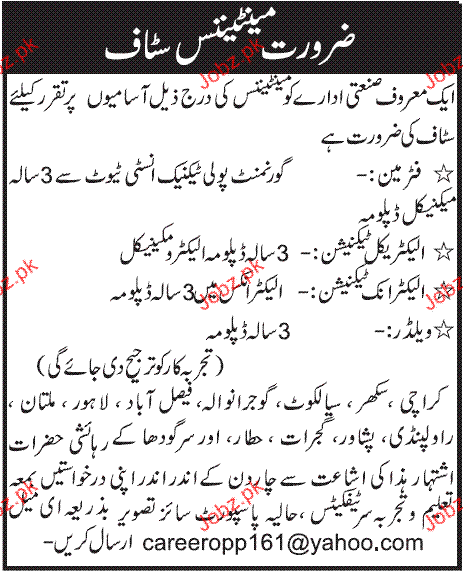 ضرورت مینٹیننس سٹاف
ایک معروف صنعتی ادارے کو مینٹیننس کی درج ذیل آسامیوں پر تقرر کیلئے
سٹاف کی ضرورت ہے
☆ فٹر مین:- گورنمنٹ پولی ٹیکنیک انسٹی ٹیوٹ سے 3 سالہ
میکنیکل ڈپلومہ
☆ الیکٹریکل ٹیکنیشن:- 3 سالہ ڈپلومہ الیکٹرو مکینیکل
☆ الیکٹرانک ٹیکنیشن:- الیکٹرانکس میں 3 سالہ ڈپلومہ
☆ ویلڈر:- 3 سالہ ڈپلومہ
(تجربہ کار کو ترجیح دی جائے گی)
کراچی، سکھر، سیالکوٹ، گوجرانوالہ، فیصل آباد، لاہور، ملتان،
راولپنڈی، پشاور، گجرات، حطار، اور سرگودھا کے رہائشی حضرات
اشتہار ہذا کی اشاعت سے چار دن کے اندر اندر اپنی درخواستیں بمعہ
تعلیم و تجربہ سرٹیفکیٹس، حالیہ پاسپورٹ سائز تصویر بذریعہ ای میل
careeropp161@yahoo.com ارسال کریں-
Jobz.pk
Jobz.pk
Jobz.pk
Jobz.pk
Jobz.pk
Jobz.pk
Jobz.pk
Jobz.pk
Jobz.pk